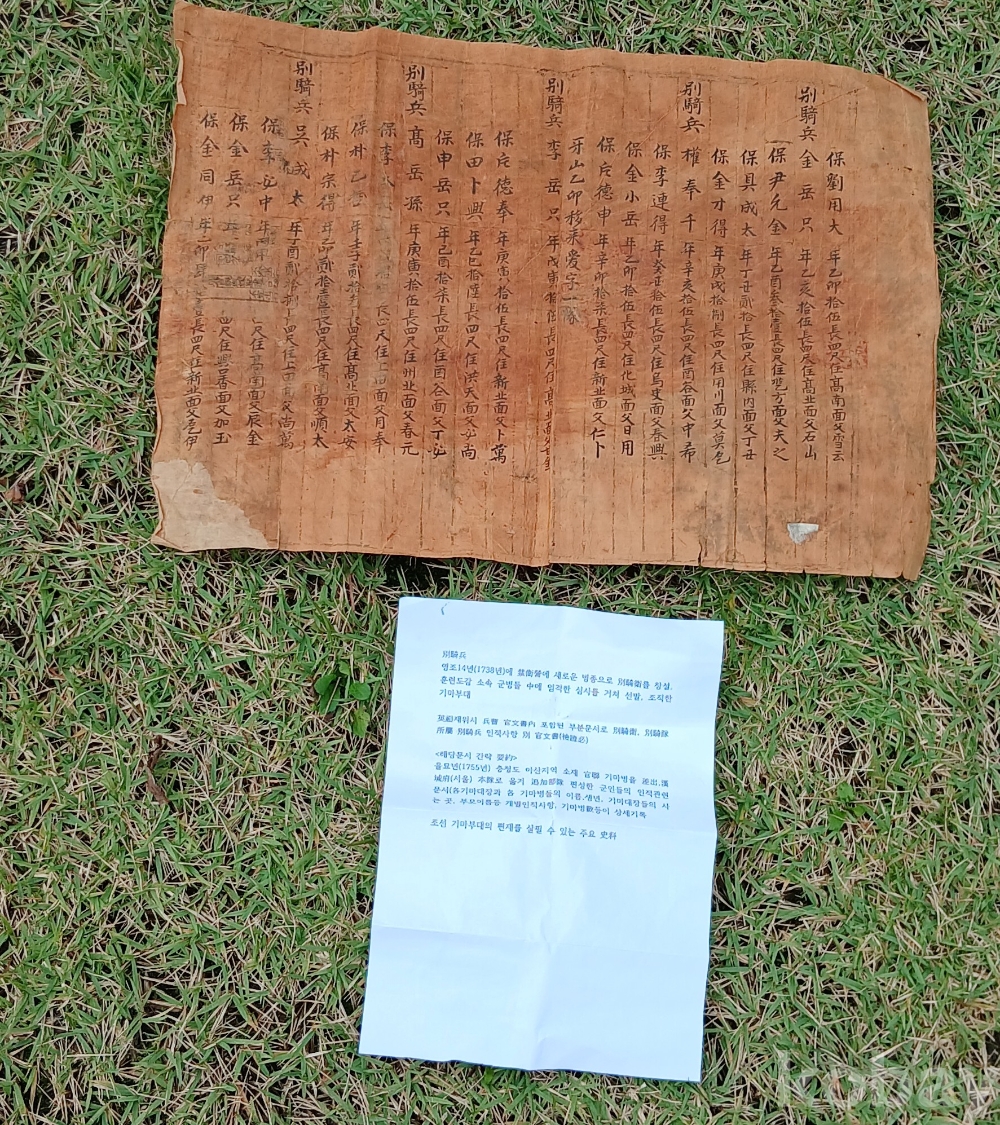 保劉用大 年乙卯拾伍長四尺住高南面父雪云
別騎兵金岳只 年乙亥拾伍長四尺住高北面父石山
保尹乭金 年乙酉叁拾壹長四尺住方面父夭之
保具成太 年丁丑貳拾長四尺住縣內面父丁丑
保金才得 年庚戌拾捌長四尺住用川面父莫乞
別騎兵權奉千 年辛亥拾伍長四尺住酉谷面父中希
保李連得 年癸丑拾伍長四尺住馬面父春興
保金小岳 年乙卯拾伍長四尺住化城面父日用
保片德申 年辛卯拾柒長四尺住新北面父仁卜
牙山乙卯移來愛字一隊
別騎兵李岳只 年戊寅拾伍長四尺住高北面父
保片德奉 年庚寅拾伍長四尺住新北面父卜萬
保田卜興 年乙巳拾陸長四尺住洪天面父必尚
保申岳只 年乙酉拾柒長四尺住酉谷面父丁必
別騎兵高岳孫 年庚寅拾伍長四尺住州北面父春元
保李 長四尺住上田面父月奉
保朴乙 年壬子貳拾長四尺住高北面父太安
保朴宗得 年乙卯貳拾壹長四尺住高南面父順太
別騎兵吳成太 年丁酉貳拾捌長四尺住上田面父尚萬
保李必中 年 尺住高南面父辰金
保金岳只 年 四尺住興香面父加玉
保金同伊 年乙卯 長四尺住新北面父乭伊
別騎兵
영조14년(1738년)에 禁衛營에 새로운 병종으로 別騎衛를 창설,
훈련도감 소속 군병들 中에 엄격한 심사를 거쳐 선발, 조직한
기마부대
英祖재위시 兵曹 官文書內 포함된 부분문서로 別騎衛, 別騎隊
所屬 別騎兵 인적사항 別 官文書(檢證必)
<해당문서 간략 要約>
을묘년(1755년) 충청도 아산지역 소재 官聯 기마병을 差出, 漢
城府(서울) 本隊로 옮기 追加部隊 편성한 군인들의 인적관련
문서(各기마대장과 各 기마병들의 이름,생년, 기마대장들의 사
는 곳, 부모이름등 개별인적사항, 기마병歡등이 상세기록
조선 기마부대의 편재를 살필 수 있는 주요 史料
kobay